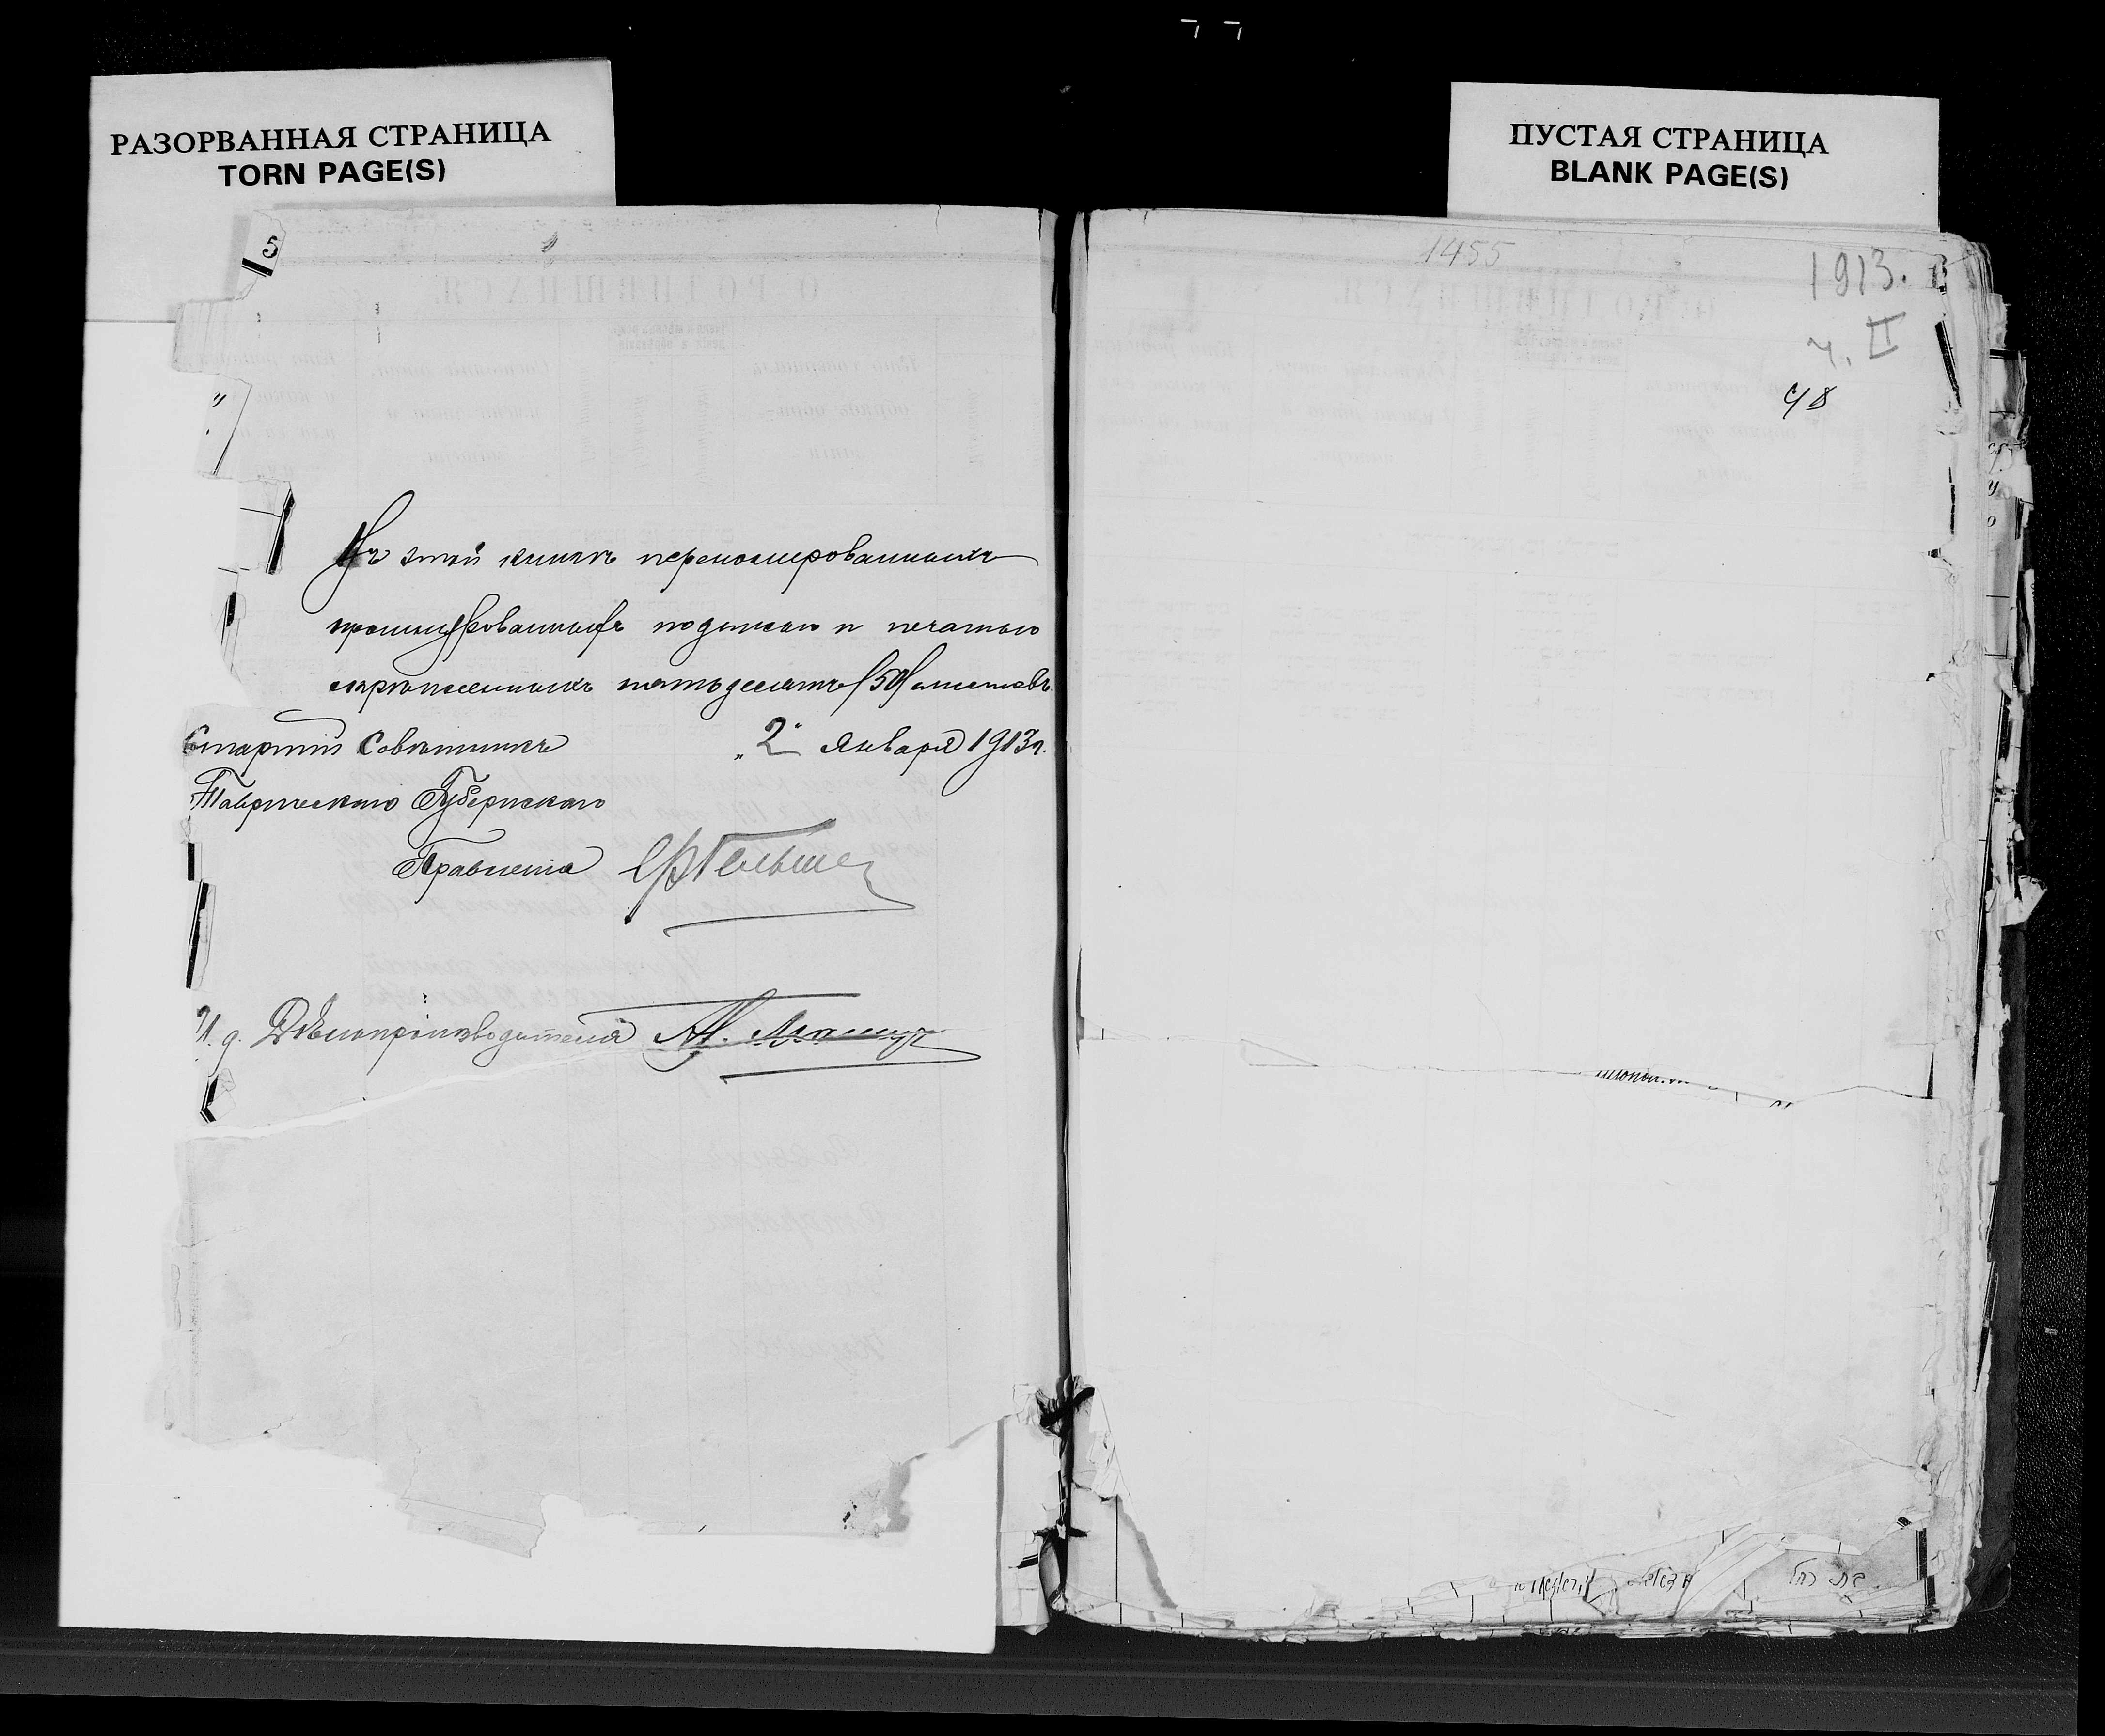 РАЗОРВАННАЯ СТРАНИЦА
TORN PAGE(S)
ПУСТАЯ СТРАНИЦА
BLANK PAGE(S)
5
Въ этой книгѣ переномерованныхъ
прошнурованныхъ подписью и печатью
скрѣпленныхъ пятьдесятъ (50) листовъ.
Старшій Совѣтникъ „2" Января 1913 г.
Таврическаго Губернскаго
Правленія
И. д. Дѣлопроизводителя
1455
1913.
ч. II